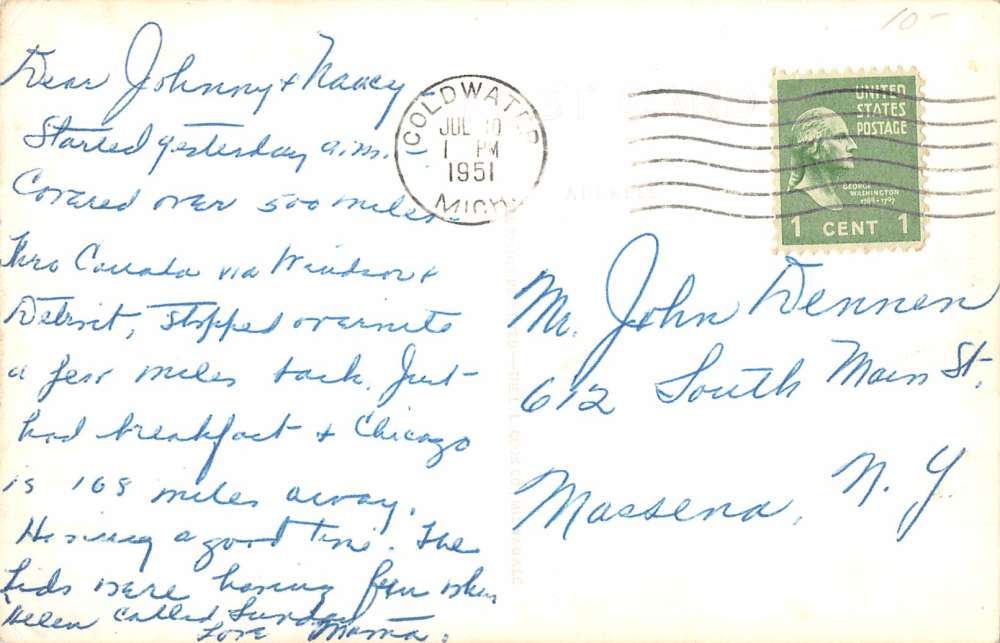 10-
Dear Johnny & Nancy -
Started yesterday a.m. -
Covered over 500 miles.
Thro Canada via Windsor &
Detroit, stopped overnite
a few miles back. Just
had breakfast & Chicago
is 168 miles away.
Having a good time. The
kids were having fun when
Helen called Sunday
Love Mama.
COLDWATER
JUL 10
1 PM
1951
MICH
UNITED
STATES
POSTAGE
GEORGE
WASHINGTON
1789-1797
1 CENT 1
Mr. John Dennen
612 South Main St.
Massena, N. Y